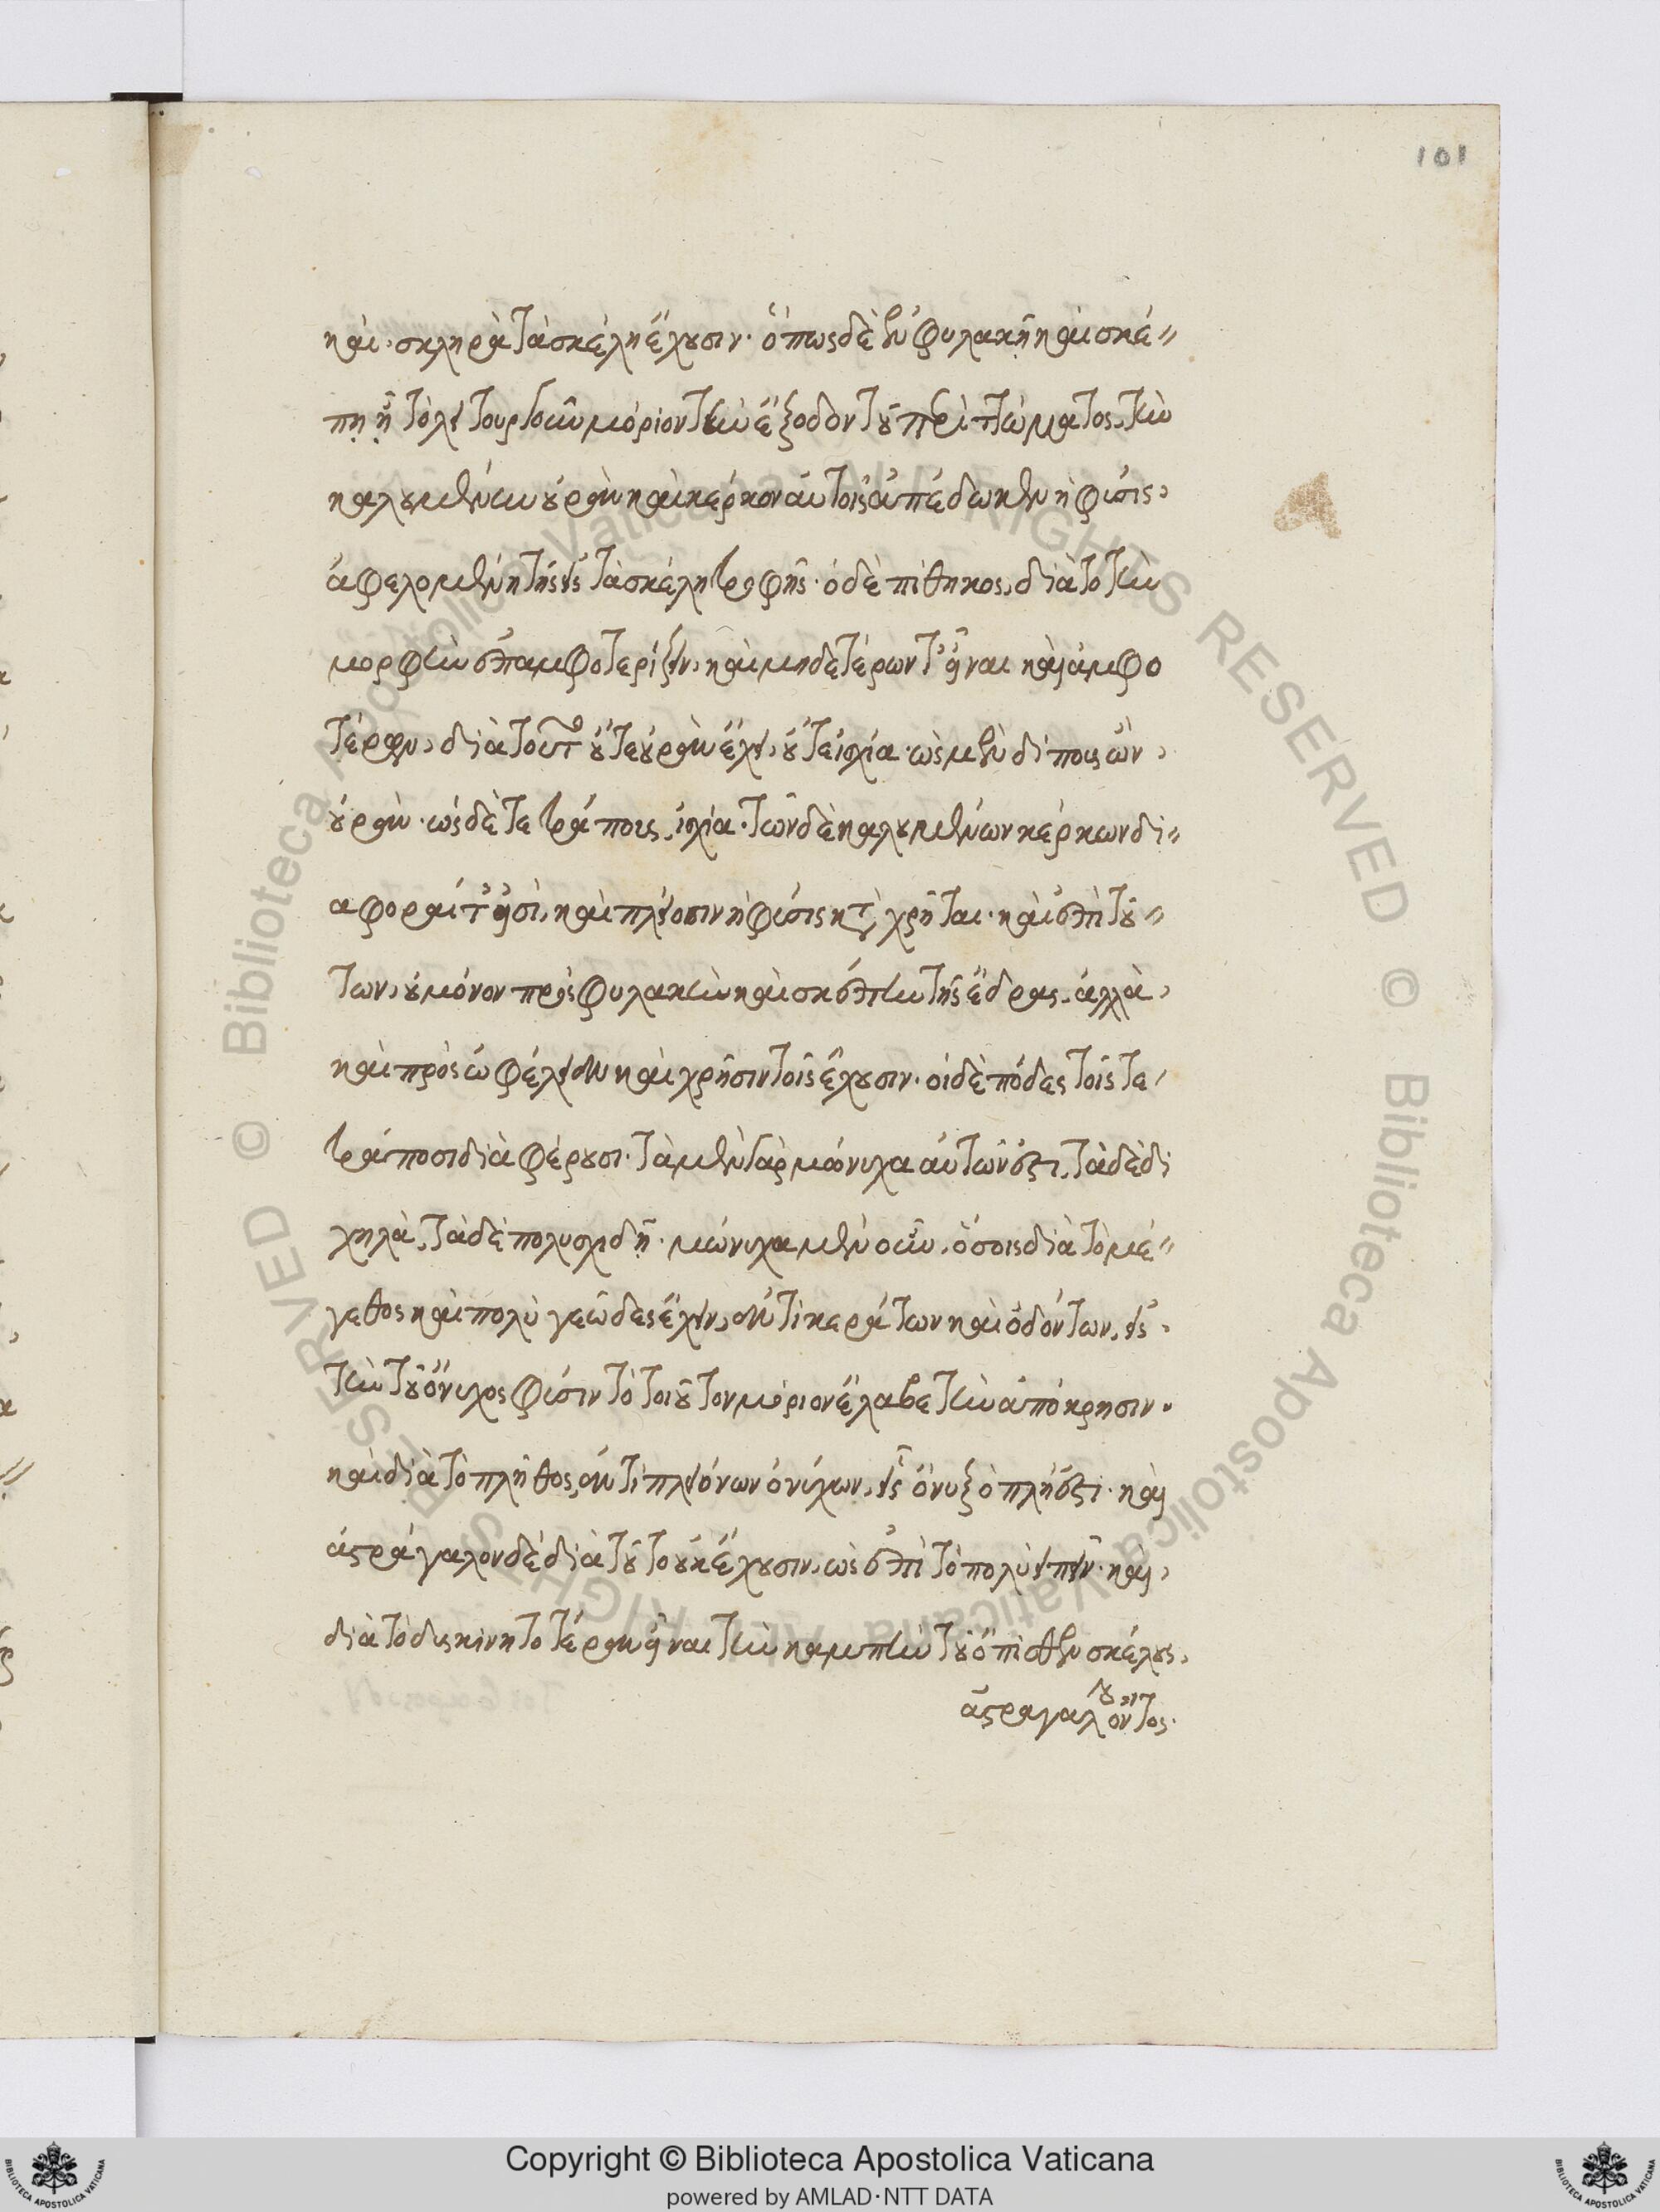 101
καὶ σκληρὰ τὰ σκέλη ἔχουσιν· ὅπως δὲ ἐν φυλακῇ καὶ σκέ〃
πῃ ᾖ τὸ λειτουργοῦν μόριον τὴν ἔξοδον τοῦ περιττώματος, τὴν
καλουμένην οὐρὰν καὶ κέρκον αὐτοῖς ἀπέδωκεν ἡ φύσις,
ἀφελομένη τῆς εἰς τὰ σκέλη τροφῆς· ὁ δὲ πίθηκος, διὰ τὸ τὴν
μορφὴν ἐπαμφοτερίζειν, καὶ μηδετέρων τ' εἶναι καὶ ἀμφο
τέρων, διὰ τοῦτ' οὔτε οὐρὰν ἔχει, οὔτε ἰσχία· ὡς μὲν δίπους ὢν,
οὐρὰν· ὡς δὲ τετράπους, ἰσχία· τῶν δὲ καλουμένων κέρκων δι〃
αφοραί τ' εἰσὶ, καὶ πλείοσιν ἡ φύσις κατα χρῆται· καὶ ἐπὶ τού〃
των, οὐ μόνον πρὸς φυλακὴν καὶ σκέπην τῆς ἕδρας, ἀλλὰ,
καὶ πρὸς ὠφέλειαν καὶ χρῆσιν τοῖς ἔχουσιν· οἱ δὲ πόδες τοῖς τε
τράποσι διὰ φέρουσι· τὰ μὲν γὰρ μώνυχα αὐτῶν ἐστι, τὰ δὲ δι
χηλὰ, τὰ δὲ πολυσχιδῆ· μώνυχα μὲν οὖν, ὅσοις διὰ τὸ μέ〃
γεθος καὶ πολὺ γεῶδες ἔχειν, ἀντὶ κεράτων καὶ ὀδόντων, εἰς
τὴν τοῦ ὄνυχος φύσιν τὸ τοιοῦτον μόριον ἔλαβε τὴν ἀπόκρησιν·
καὶ διὰ τὸ πλῆθος ἀντὶ πλειόνων ὀνύχων, εἷς ὄνυξ ὁπλή ἐστι· καὶ
ἀστράγαλον δὲ διὰ τοῦτο οὐκ ἔχουσιν, ὡς ἐπὶ τὸ πολὺ εἰπεῖν· καὶ,
διὰ τὸ δυσκινητοτέραν εἶναι τὴν καμπὴν τοῦ ὄπισθεν σκέλους,
ἀστραγάλου ὄντος·
Copyright © Biblioteca Apostolica Vaticana
powered by AMLAD·NTT DATA